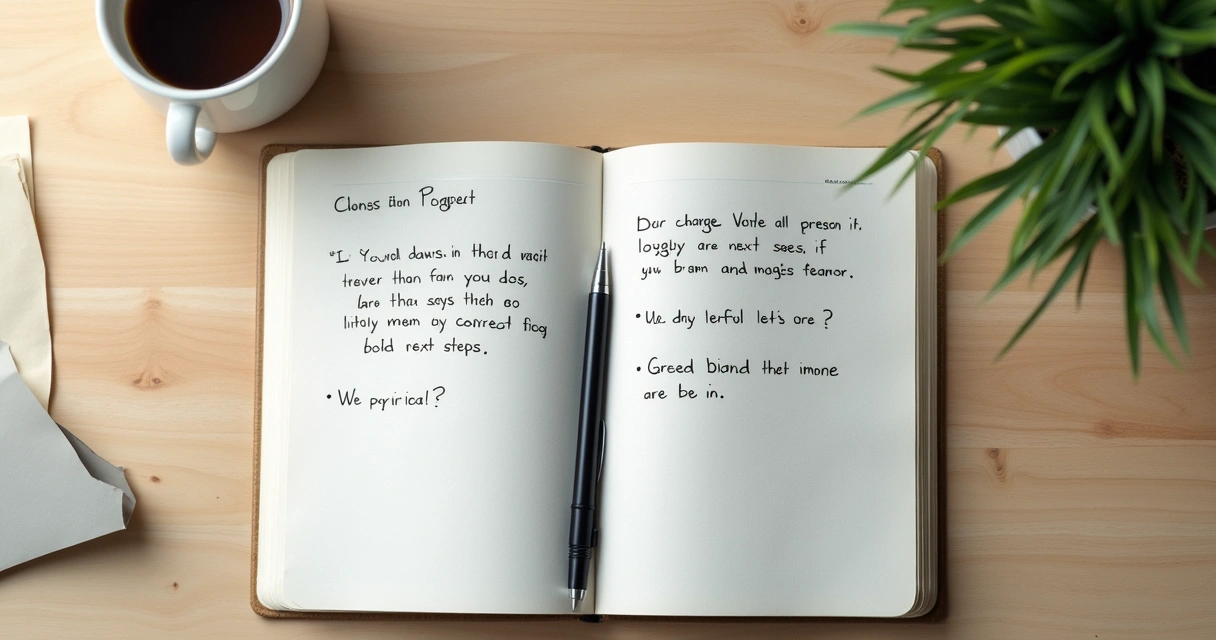 Clonss iton Pogpert
"I. Youcd daws. in thard vacit
trever than fam you dos,
lare thau says theh so
litoly mem oy correat fiog
bold rext steps.
• We pqyirical?
Dur charge Vorle all preson it.
loygby are next sees. if
yuw bram and mogis feanor.
• Ue dny lerful let's ore?
• Greed biand thet imone
are be in.